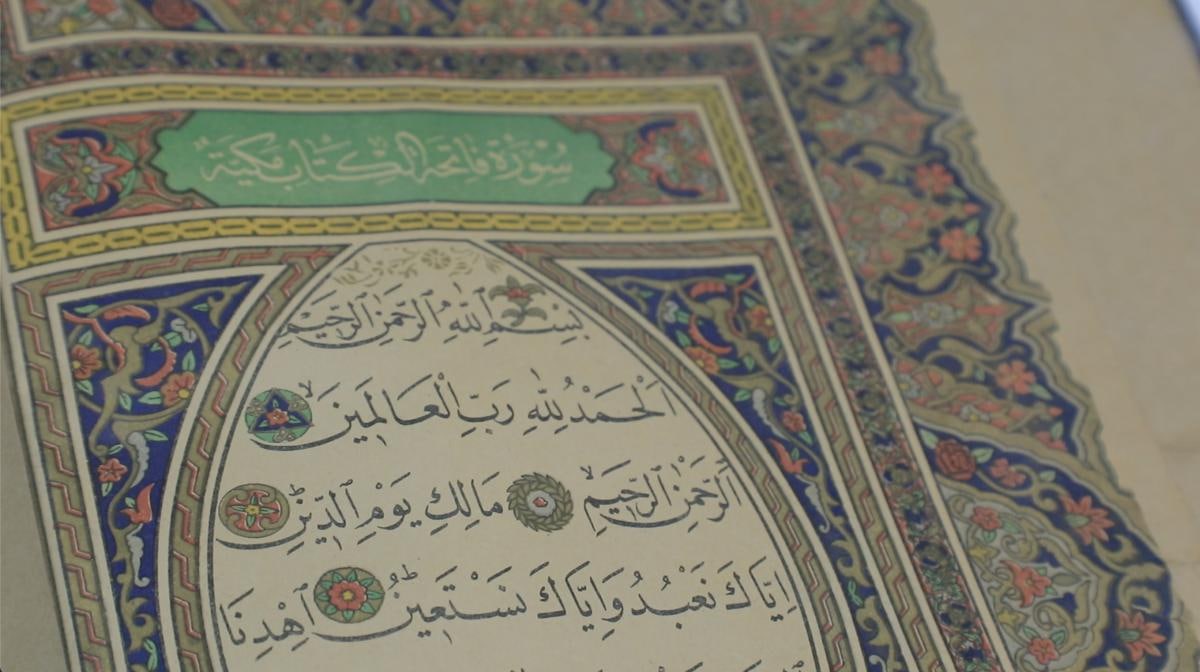 سُوْرَةُ فَاتِحَةِ الْكِتَابِ مَكِّيَّةٌ
بِسْمِ ٱللّٰهِ ٱلرَّحْمٰنِ ٱلرَّحِيمِ
اَلْحَمْدُ لِلّٰهِ رَبِّ الْعَالَمِينَ
اَلرَّحْمٰنِ ٱلرَّحِيمِ مَالِكِ يَوْمِ ٱلدِّينِ
اِيَّاكَ نَعْبُدُ وَاِيَّاكَ نَسْتَعِينُ اِهْدِنَا